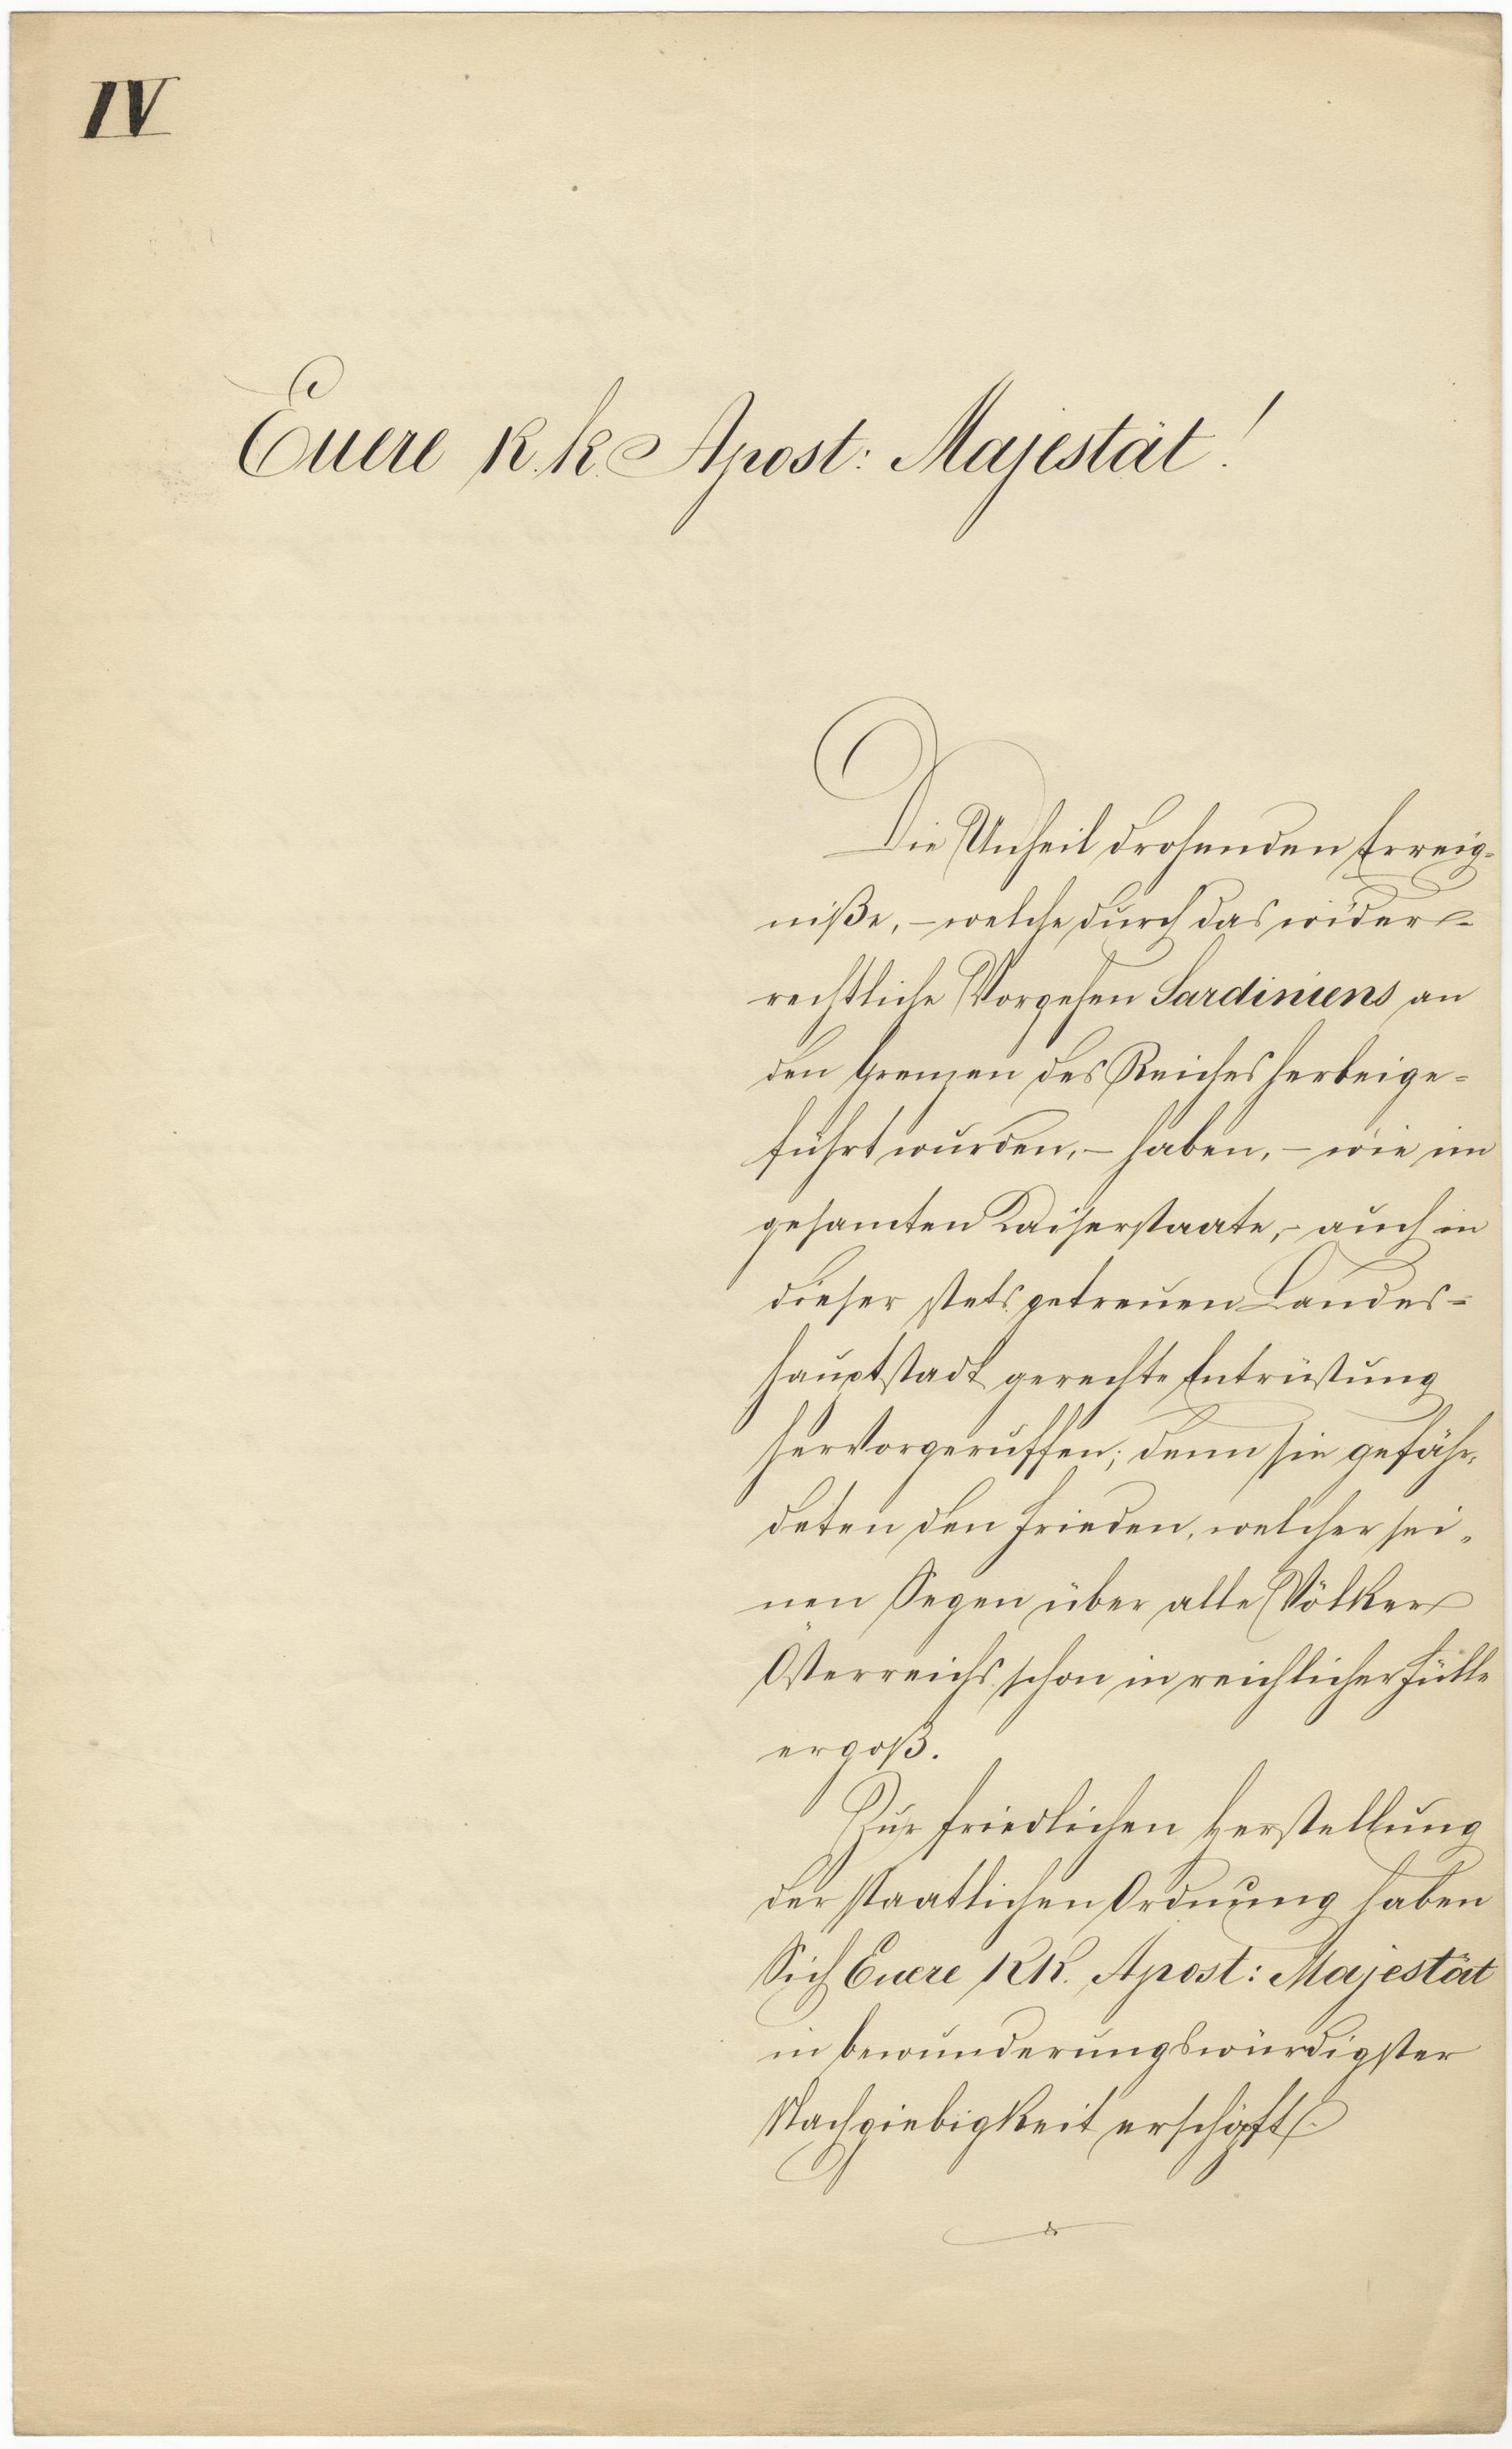 IV
Euere k. k. Apost: Majestät!
Die Unheil drohenden Erreig-
niße, – welche durch das wider-
rechtliche Vorgehen Sardiniens an
den Grenzen des Reiches herbeige-
führt wurden, – haben, – wie im
gesamten Kaiserstaate, – auch in
dieser stets getreuen Landes-
hauptstadt gerechte Entrüstung
hervorgeruffen; denn sie gefähr-
deten den Frieden, welcher sei-
nen Segen über alle Völker
Österreichs schon in reichlicher Fülle
ergoß.
Zur friedlichen Herstellung
der staatlichen Ordnung haben
Sich Euere KK. Apost: Majestät
in bewunderungswürdigster
Nachgiebigkeit erschöpft.